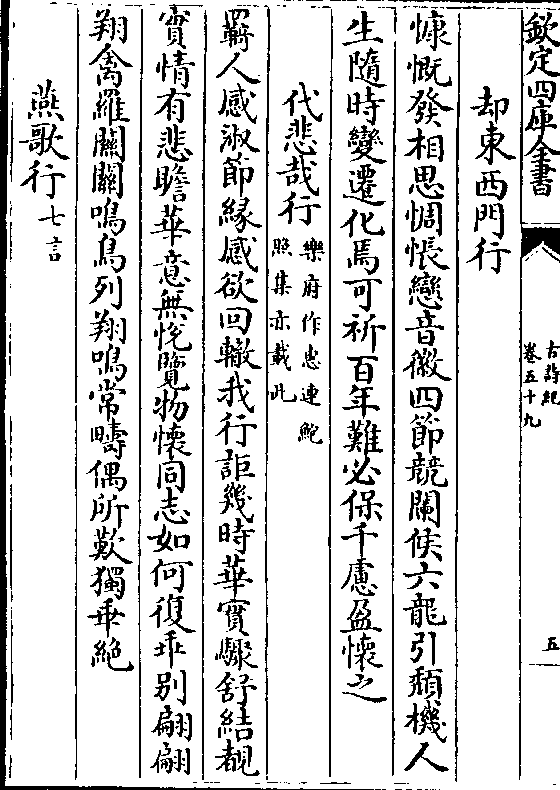 欽定四庫全書
古詩紀
卷五十九
五
却東西門行
慷慨發相思惆悵戀音徽四節競闌候六龍引頽機人
生隨時變遷化焉可祈百年難必保千慮盈懷之
代悲哉行
樂府作惠連鮑
照集亦載此
羇人感淑節緣感欲回轍我行詎幾時華實驟舒結覩
實情有悲瞻華意無悅覽物懷同志如何復乖别翩翩
翔禽羅關關鳴鳥列翔鳴常疇偶所歎獨乖絶
燕歌行
七言